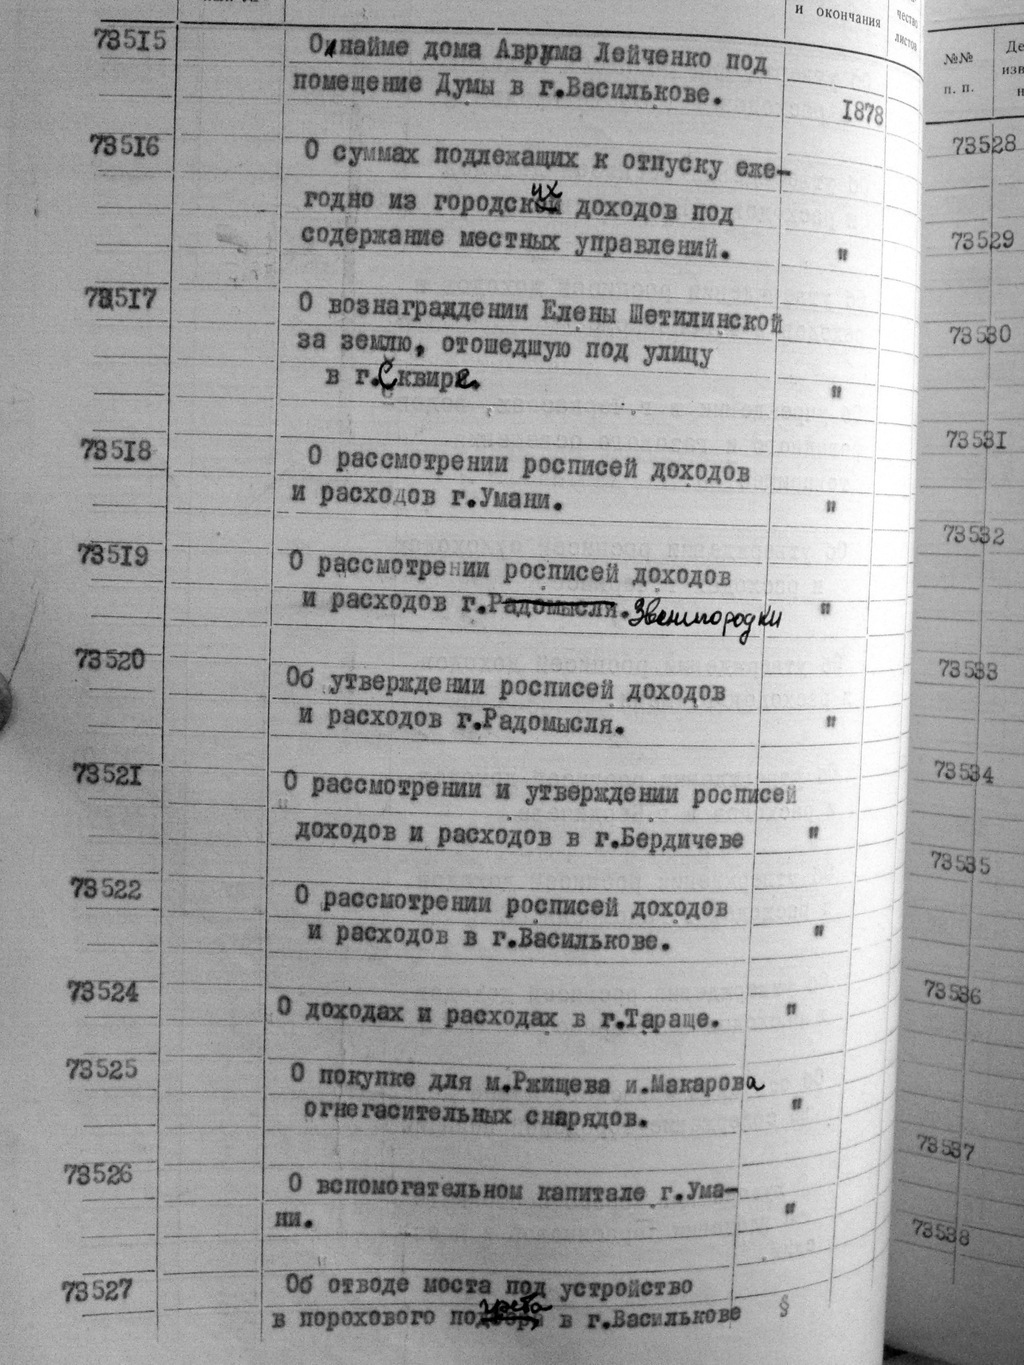 и окончания
чество
листов
73515
О найме дома Аврума Лейченко под
помещение Думы в г.Василькове.
1878
73516
О суммах подлежащих к отпуску еже-
годно из городских доходов под
содержание местных управлений.
"
73517
О вознаграждении Елены Шетилинской
за землю, отошедшую под улицу
в г.Сквире.
"
73518
О рассмотрении росписей доходов
и расходов г.Умани.
"
73519
О рассмотрении росписей доходов
и расходов г.Радомысли. Звенигородки
"
73520
Об утверждении росписей доходов
и расходов г.Радомысля.
"
73521
О рассмотрении и утверждении росписей
доходов и расходов в г.Бердичеве
"
73522
О рассмотрении росписей доходов
и расходов в г.Василькове.
"
73524
О доходах и расходах в г.Тараще.
"
73525
О покупке для м.Ржищева и.Макарова
огнегасительных снарядов.
"
73526
О вспомогательном капитале г.Ума-
ни.
"
73527
Об отводе моста под устройство
в порохового погреба в г.Василькове
§
№№
п. п.
Де
изв
н
73528
73529
73530
73531
73532
73533
73534
73535
73536
73537
73538